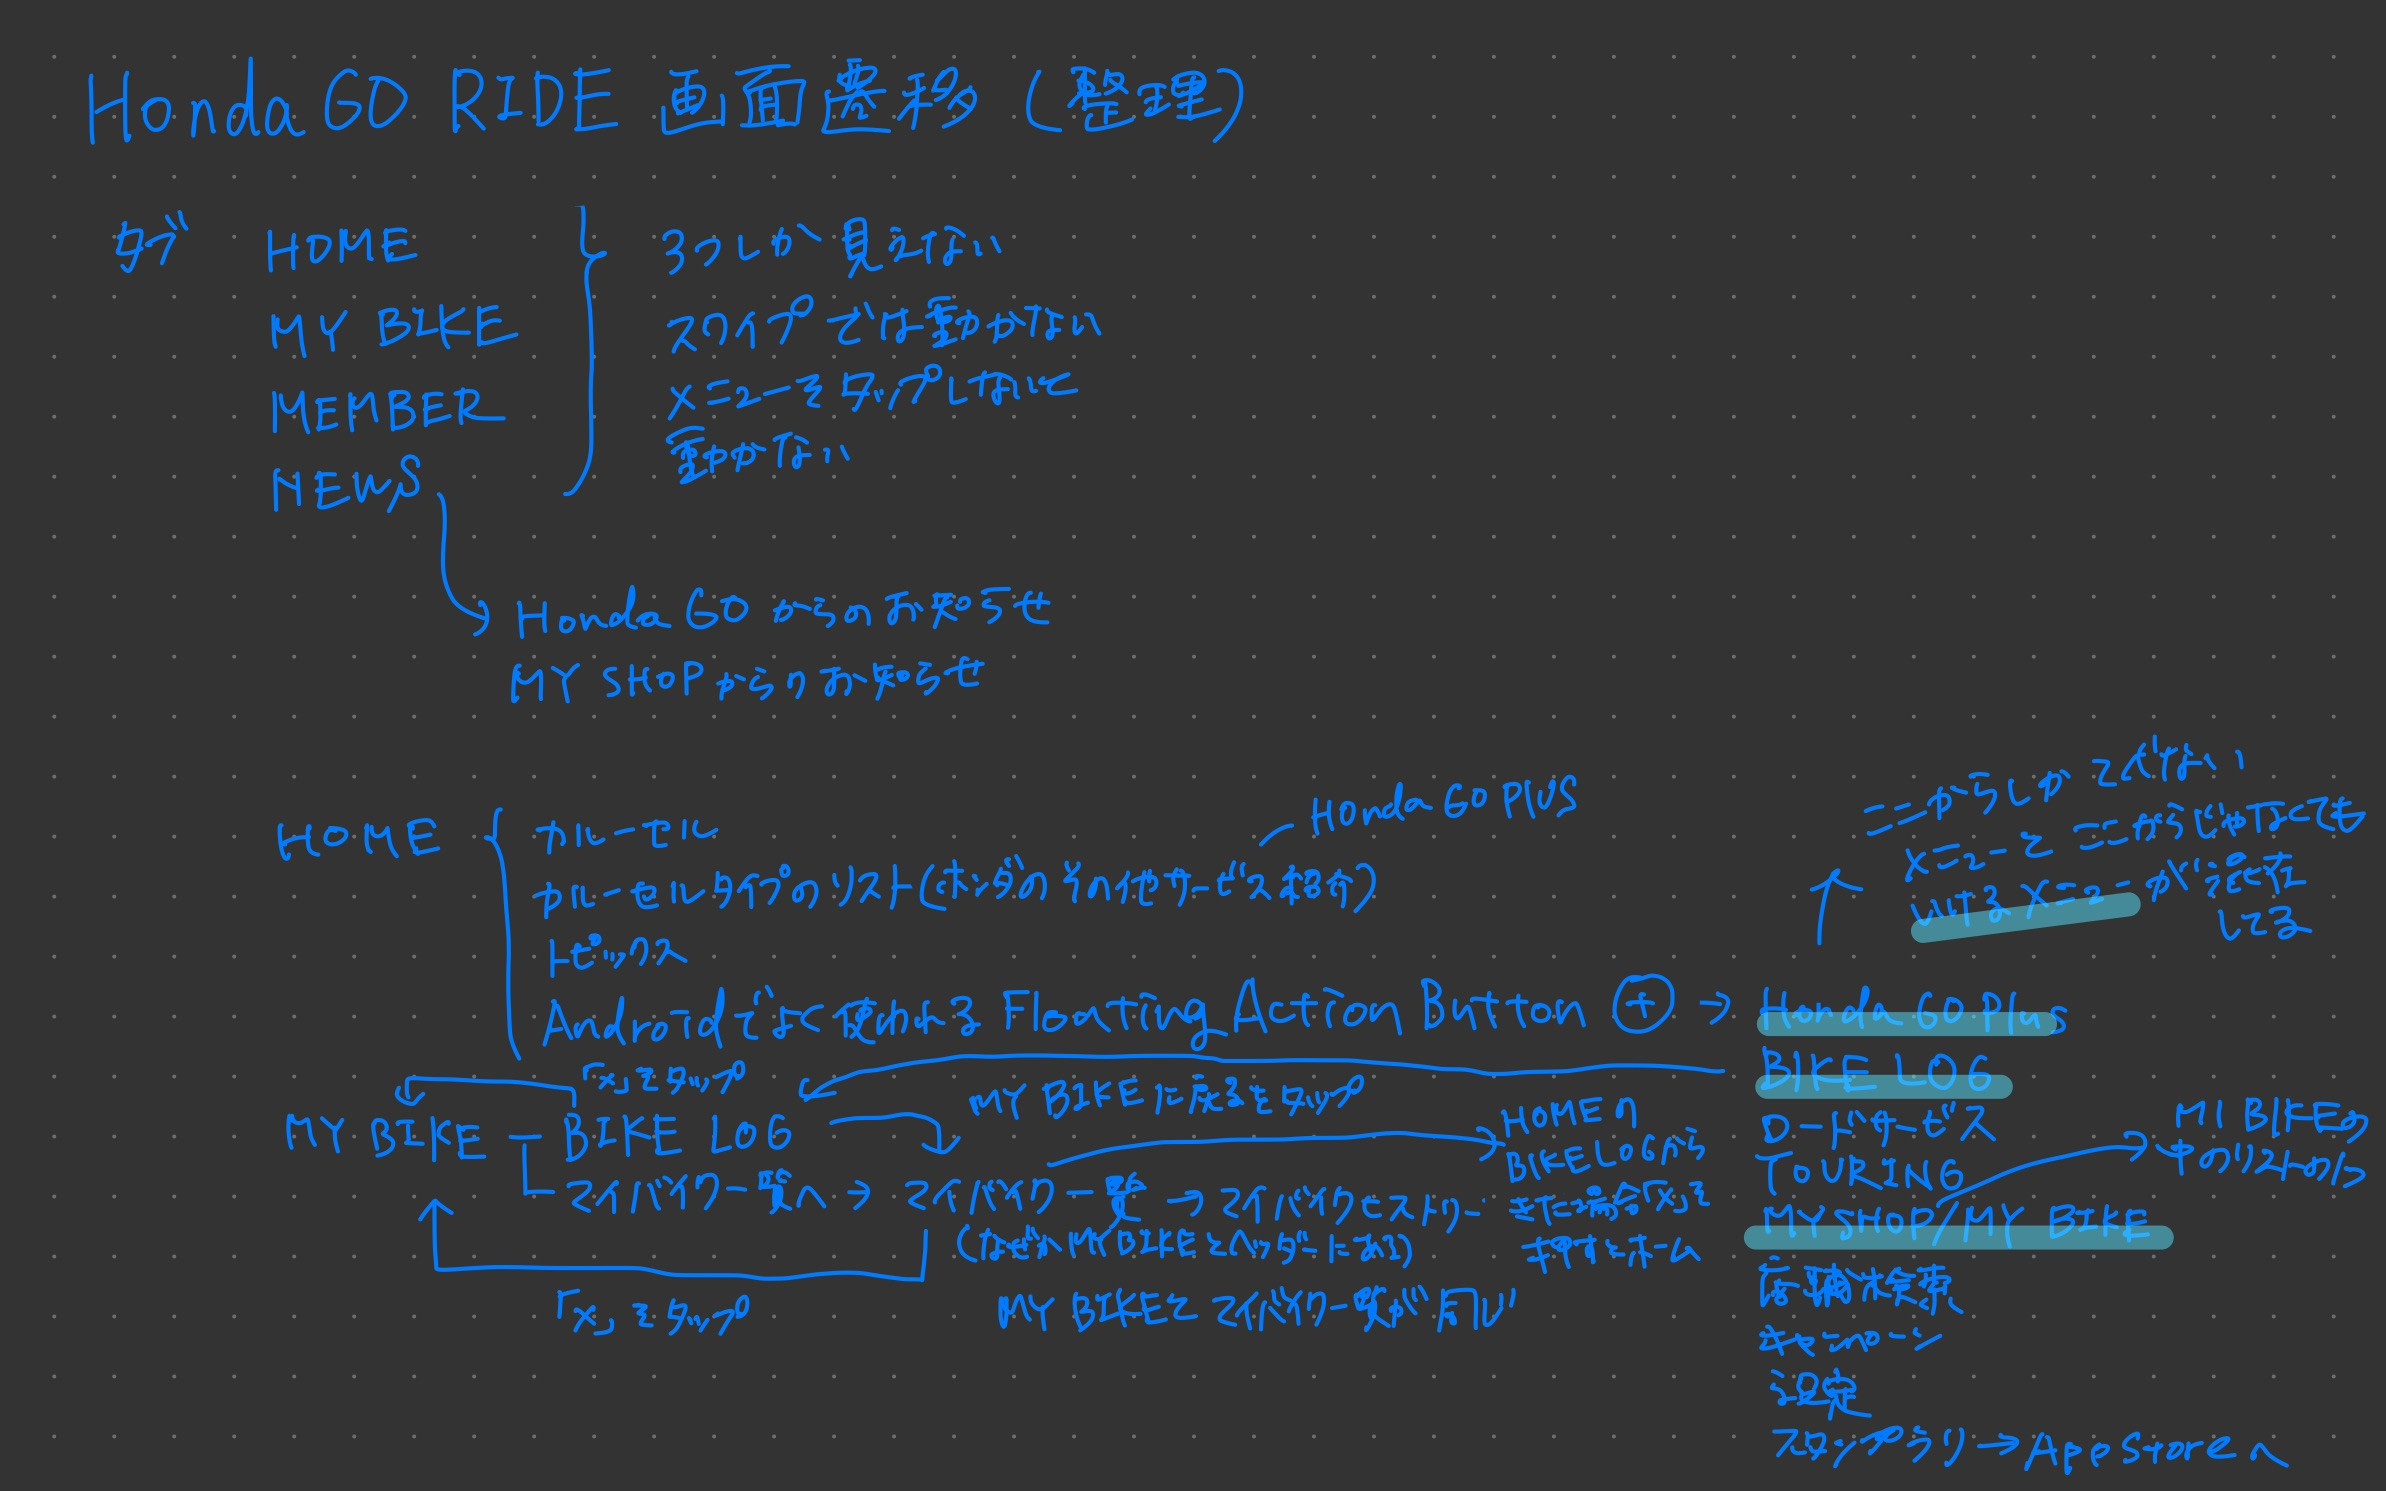 Honda GO RIDE 画面遷移 (整理)
タブ
HOME
MY BIKE
MEMBER
NEWS
3つしか見えない
スワイプでは動かない
メニューをタップしないと
動かない
Honda GO からのお知らせ
MY SHOP からのお知らせ
HOME
カルーセル
カルーセルタイプのリスト(ホンダのその他サービス紹介)
Honda GO PLUS
トピックス
Androidでよく使われる Floating Action Button + →
Honda GO Plus
BIKE LOG
ロードサービス
TOURING
MY SHOP/MY BIKE
設定
アプリ → App Storeへ
ここからしか
メニューとここからじゃなくても
いけるメニューが混在
してる
MY BIKE
BIKE LOG
「×」をタップ
マイバイク一覧へ → マイバイク一覧 → マイバイクヒストリー
(なぜかMY BIKEとヘッダーにある)
MY BIKEとマイバイク一覧が同じ
「×」をタップ
MY BIKEに戻るをタップ
HOMEの
BIKE LOGから
きた場合「×」を
押すとホーム
MY BIKEの
中のリストのよう